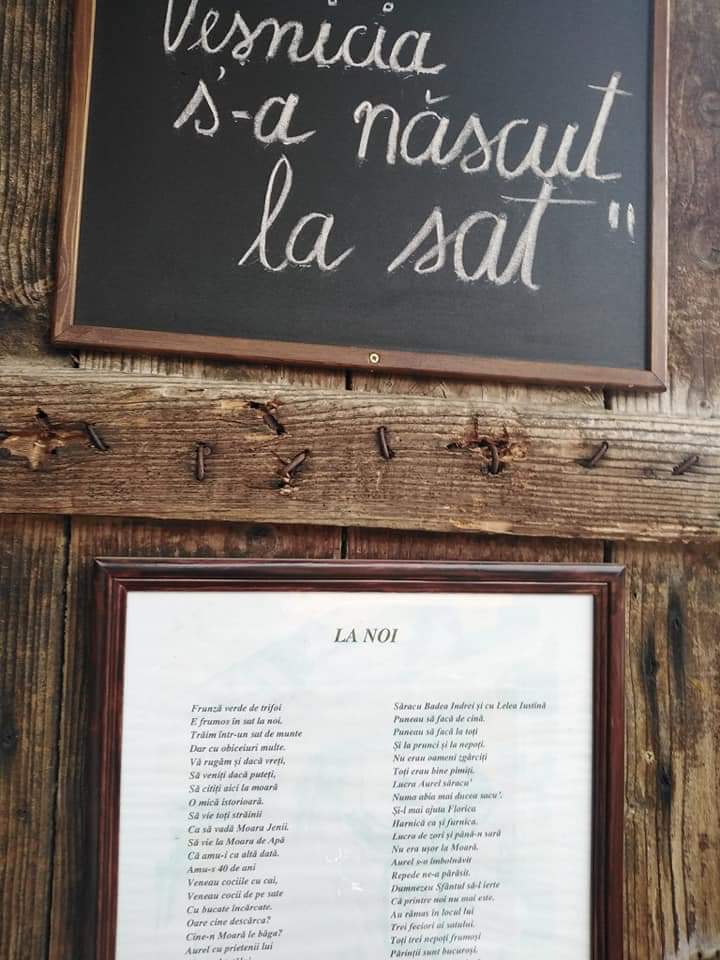 Veșnicia
s-a născut
la sat"
LA NOI
Frunză verde de trifoi
E frumos în sat la noi.
Trăim într-un sat de munte
Dar cu obiceiuri multe.
Vă rugăm și dacă vreți,
Să veniți dacă puteți,
Să citiți aici la moară
O mică istorioară.
Să vie toți străinii
Ca să vadă Moara Jenii.
Să vie la Moara de Apă
Că amu-i ca altă dată.
Amu-s 40 de ani
Veneau cociile cu cai,
Veneau cocii de pe sate
Cu bucate încărcate.
Oare cine descărca?
Cine-n Moară le băga?
Aurel cu prietenii lui
Săracu Badea Indrei și cu Lelea Iustină
Puneau să facă de cină.
Puneau să facă la toți
Și la prunci și la nepoți.
Nu erau oameni zgârciți
Toți erau bine pimiți.
Lucra Aurel săracu'
Numa abia mai ducea sacu'.
Și-l mai ajuta Florica
Harnică ca și furnica.
Lucra de zori și până-n sară
Nu era ușor la Moară.
Aurel s-o îmbolnăvit
Repede ne-a părăsit.
Dumnezeu Sfântul să-l ierte
Că printre noi nu mai este.
Au rămas în locul lui
Trei feciori ai satului.
Toți trei nepoți frumoși
Părinții sunt bucuroși.